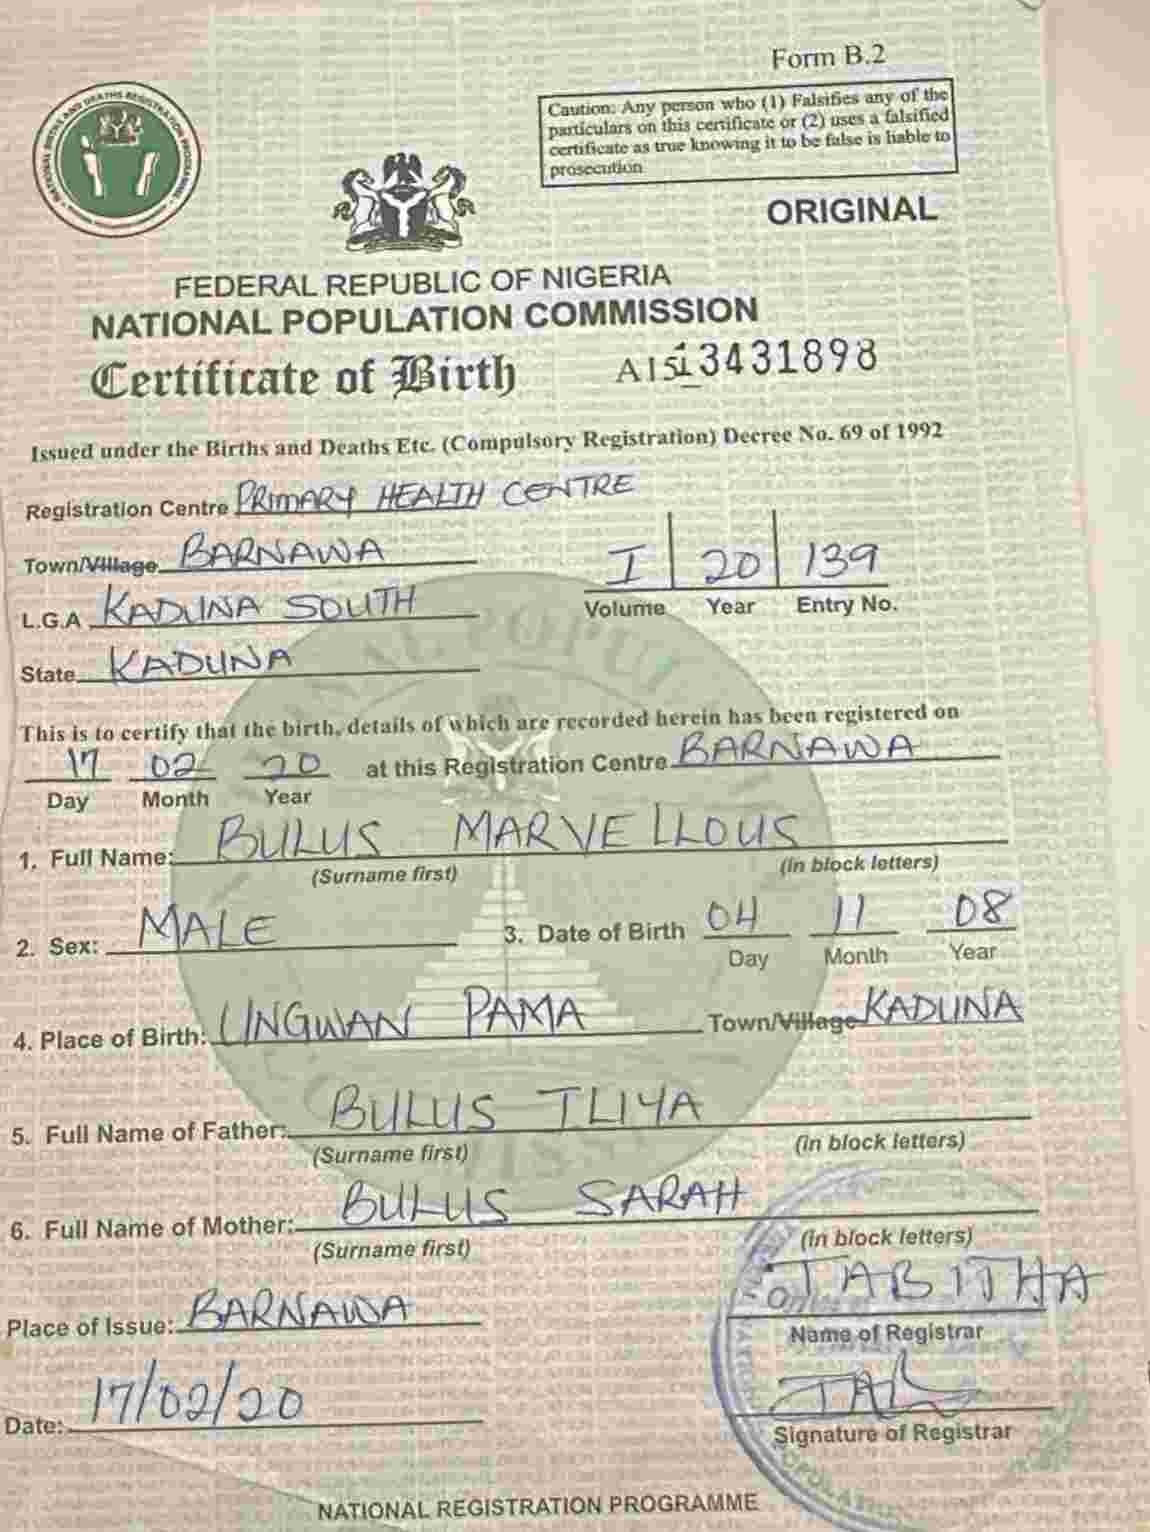 Form B.2
NATIONAL BIRTHS AND DEATHS REGISTRATION PROGRAMME
Caution: Any person who (1) Falsifies any of the
particulars on this certificate or (2) uses a falsified
certificate as true knowing it to be false is liable to
prosecution
ORIGINAL
FEDERAL REPUBLIC OF NIGERIA
NATIONAL POPULATION COMMISSION
Certificate of Birth A151 3431898
Issued under the Births and Deaths Etc. (Compulsory Registration) Decree No. 69 of 1992
Registration Centre PRIMARY HEALTH CENTRE
Town/Village BARNAWA
I 20 139
Volume Year Entry No.
L.G.A KADUNA SOUTH
State KADUNA
This is to certify that the birth, details of which are recorded herein has been registered on
17 02 20 at this Registration Centre BARNAWA
Day Month Year
1. Full Name: BULUS MARVELLOUS
(Surname first) (in block letters)
2. Sex: MALE 3. Date of Birth 04 11 08
Day Month Year
4. Place of Birth: UNGWAN PAMA Town/Village KADUNA
5. Full Name of Father: BULUS ILIYA
(Surname first) (in block letters)
6. Full Name of Mother: BULUS SARAH
(Surname first) (in block letters)
TABITHA
Place of Issue: BARNAWA
Name of Registrar
TAB
Date: 17/02/20
Signature of Registrar
NATIONAL REGISTRATION PROGRAMME